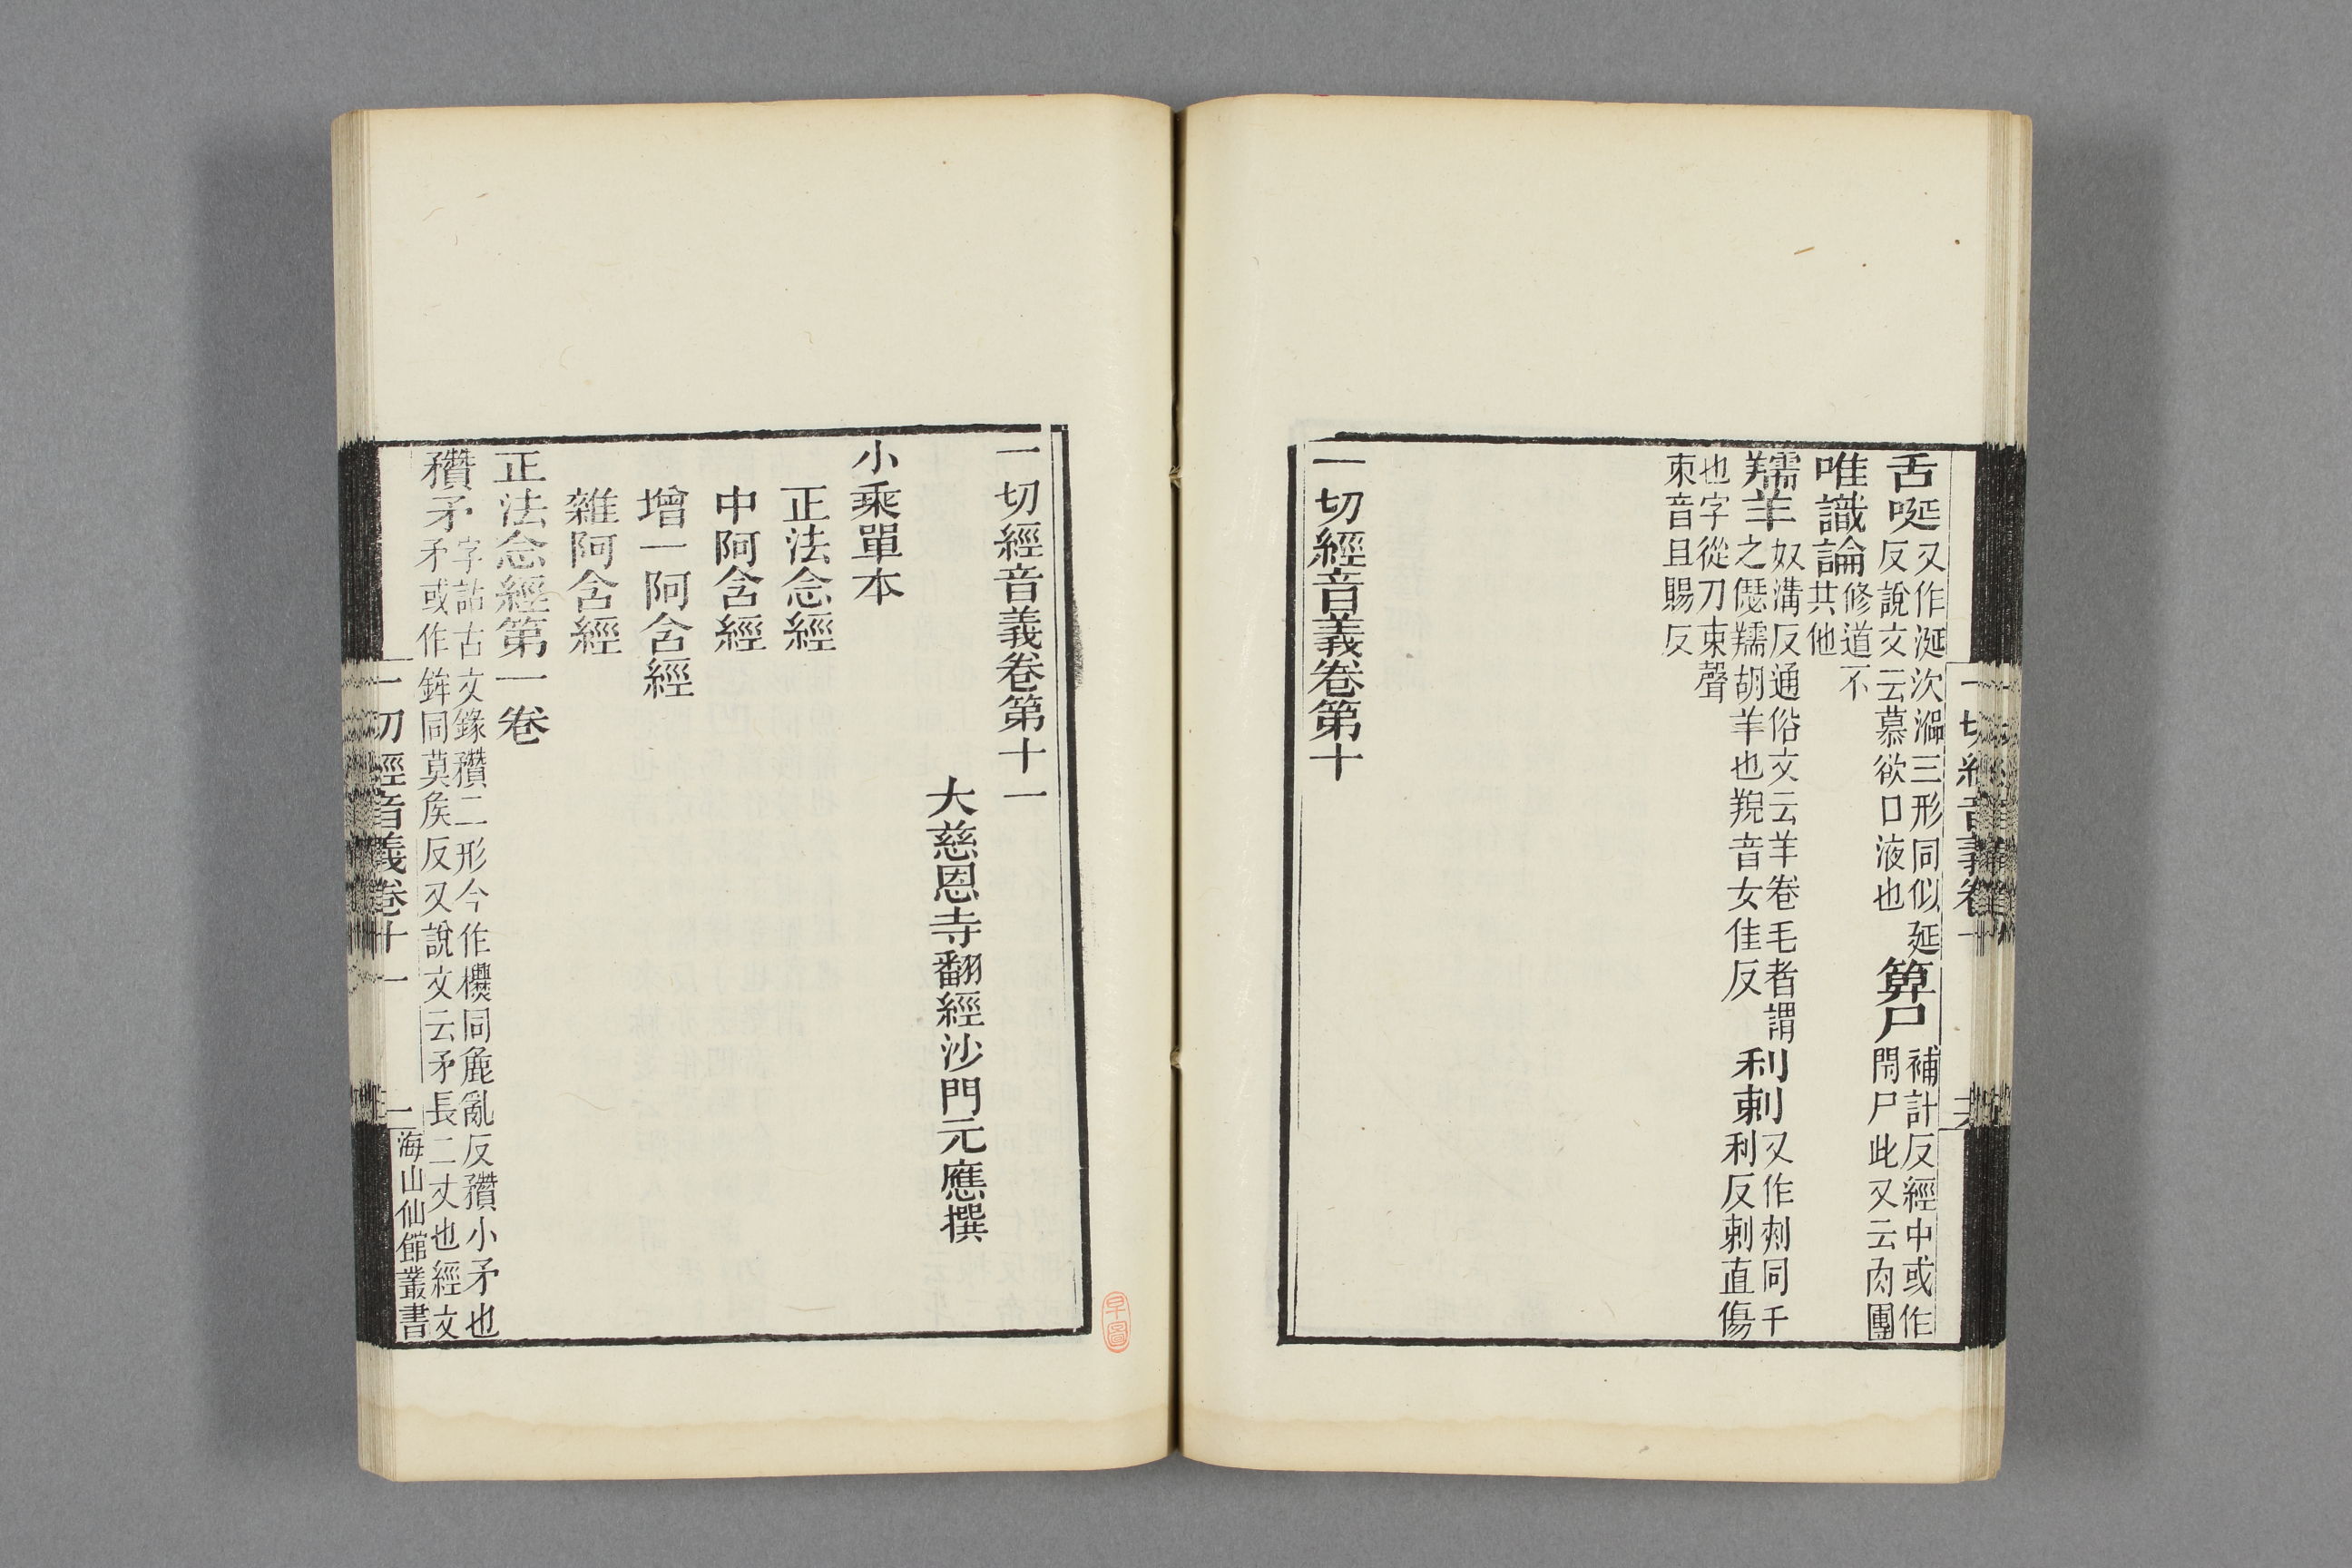 舌唌又作涎次㵪三形同似延
反說文云慕欲口液也
箅尸補計反經中或作
閉尸此又云肉團
唯識論修道不
共他
羺羊奴溝反通俗文云羊卷毛者謂
之㲯羺胡羊也羺音女佳反
利刺又作刾同千
利反刺直傷
也字從刀朿聲
朿音且賜反
一切經音義卷第十
一切經音義卷第十一
大慈恩寺翻經沙門元應撰
小乘單本
正法念經
中阿含經
增一阿含經
雜阿含經
正法念經第一卷
䂎矛字詁古文錄䂎二形今作欑同麁亂反䂎小矛也
矛或作鉾同莫侯反又說文云矛長二丈也經文
一切經音義卷十一
一
海山仙館叢書
早圖